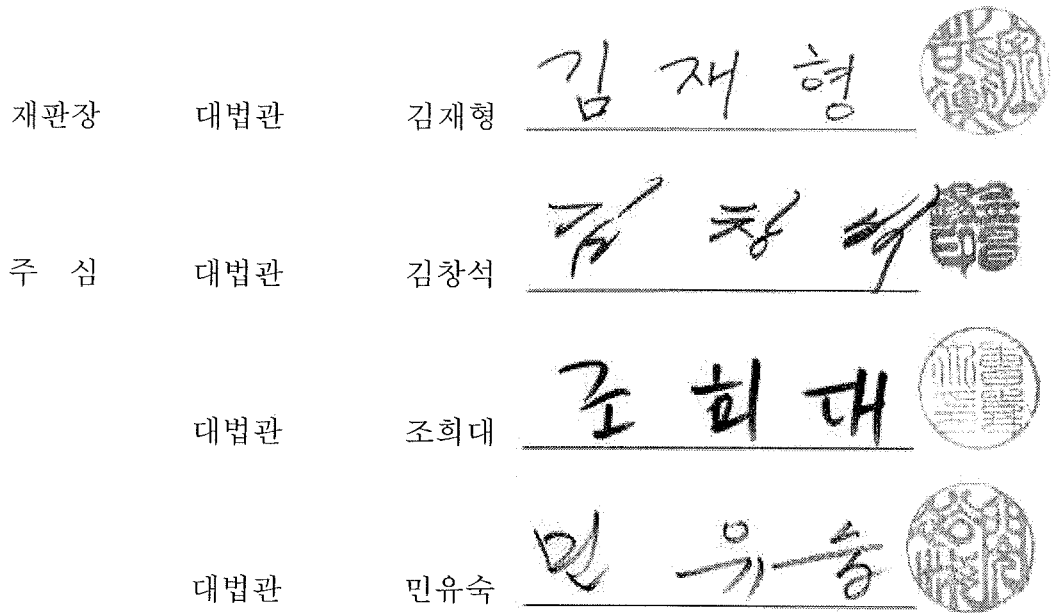 재판장 대법관 김재형 김 재 형
주 심 대법관 김창석 김 창 석
대법관 조희대 조 희 대
대법관 민유숙 민 유 숙